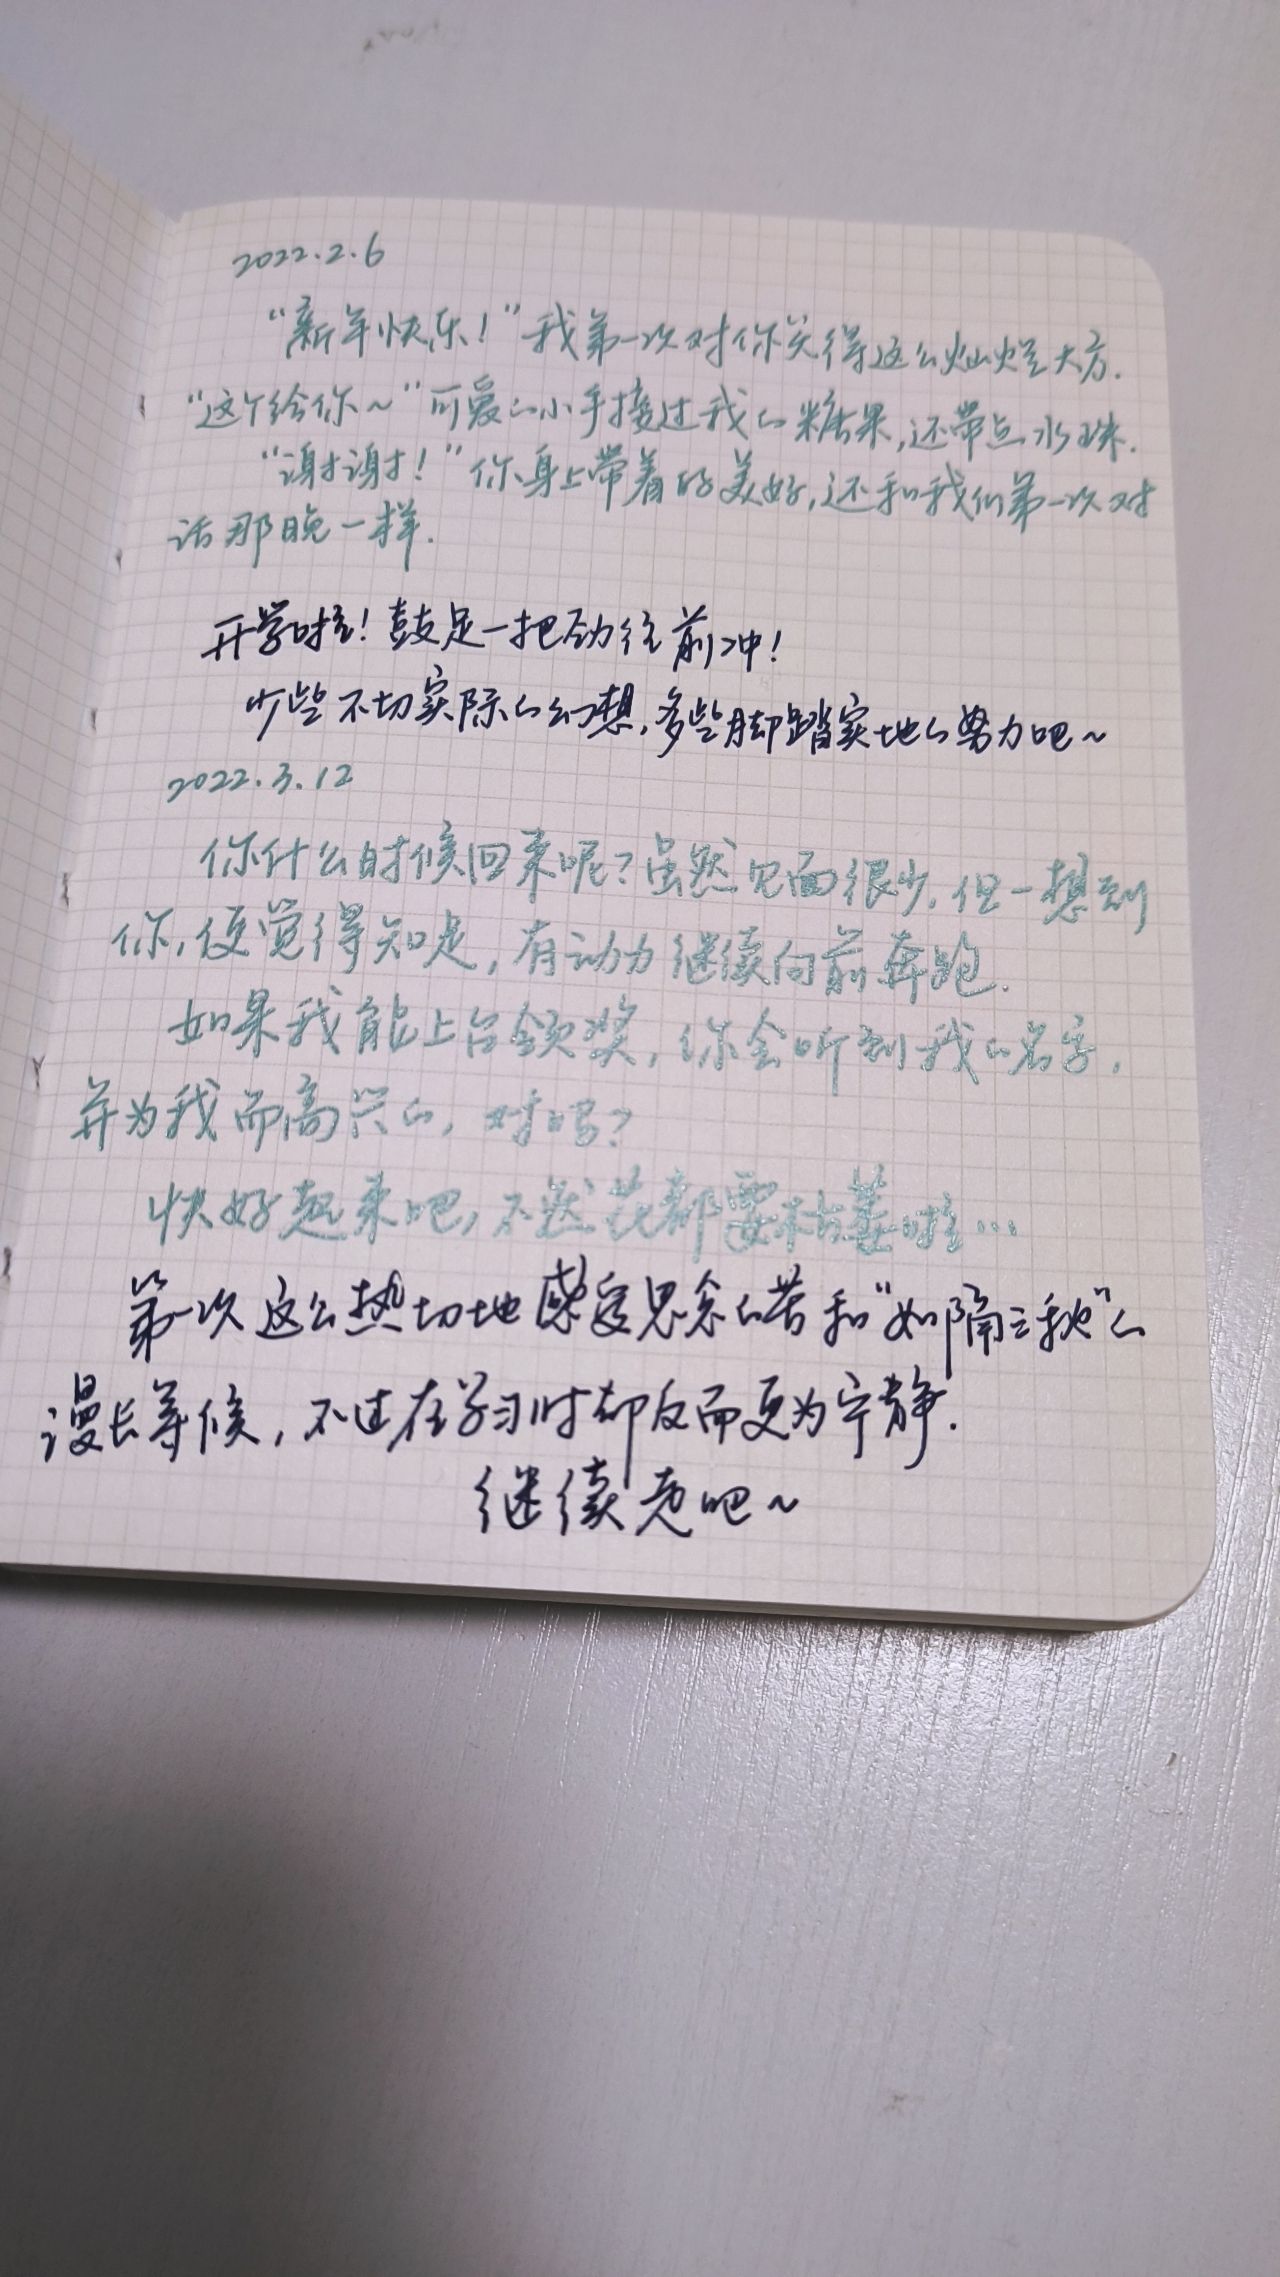 2022.2.6
“新年快乐！”我第一次对你笑得这么灿烂大方.
“这个给你~”可爱的小手接过我的糖果,还带点水珠.
“谢谢！”你身上带着的美好,还和我们第一次对
话那晚一样.
开学啦！鼓足一把劲往前冲！
少些不切实际的幻想,多些脚踏实地的努力吧~
2022.3.12
你什么时候回来呢？虽然见面很少,但一想到
你,便觉得知足,有动力继续向前奔跑.
如果我能上台领奖,你会听到我的名字,
并为我而高兴的,对吗？
快好起来吧,不然花都要枯萎啦…
第一次这么热切地感受思念的苦和“如隔三秋”的
漫长等候,不过在学习时却反而更为宁静.
继续走吧~